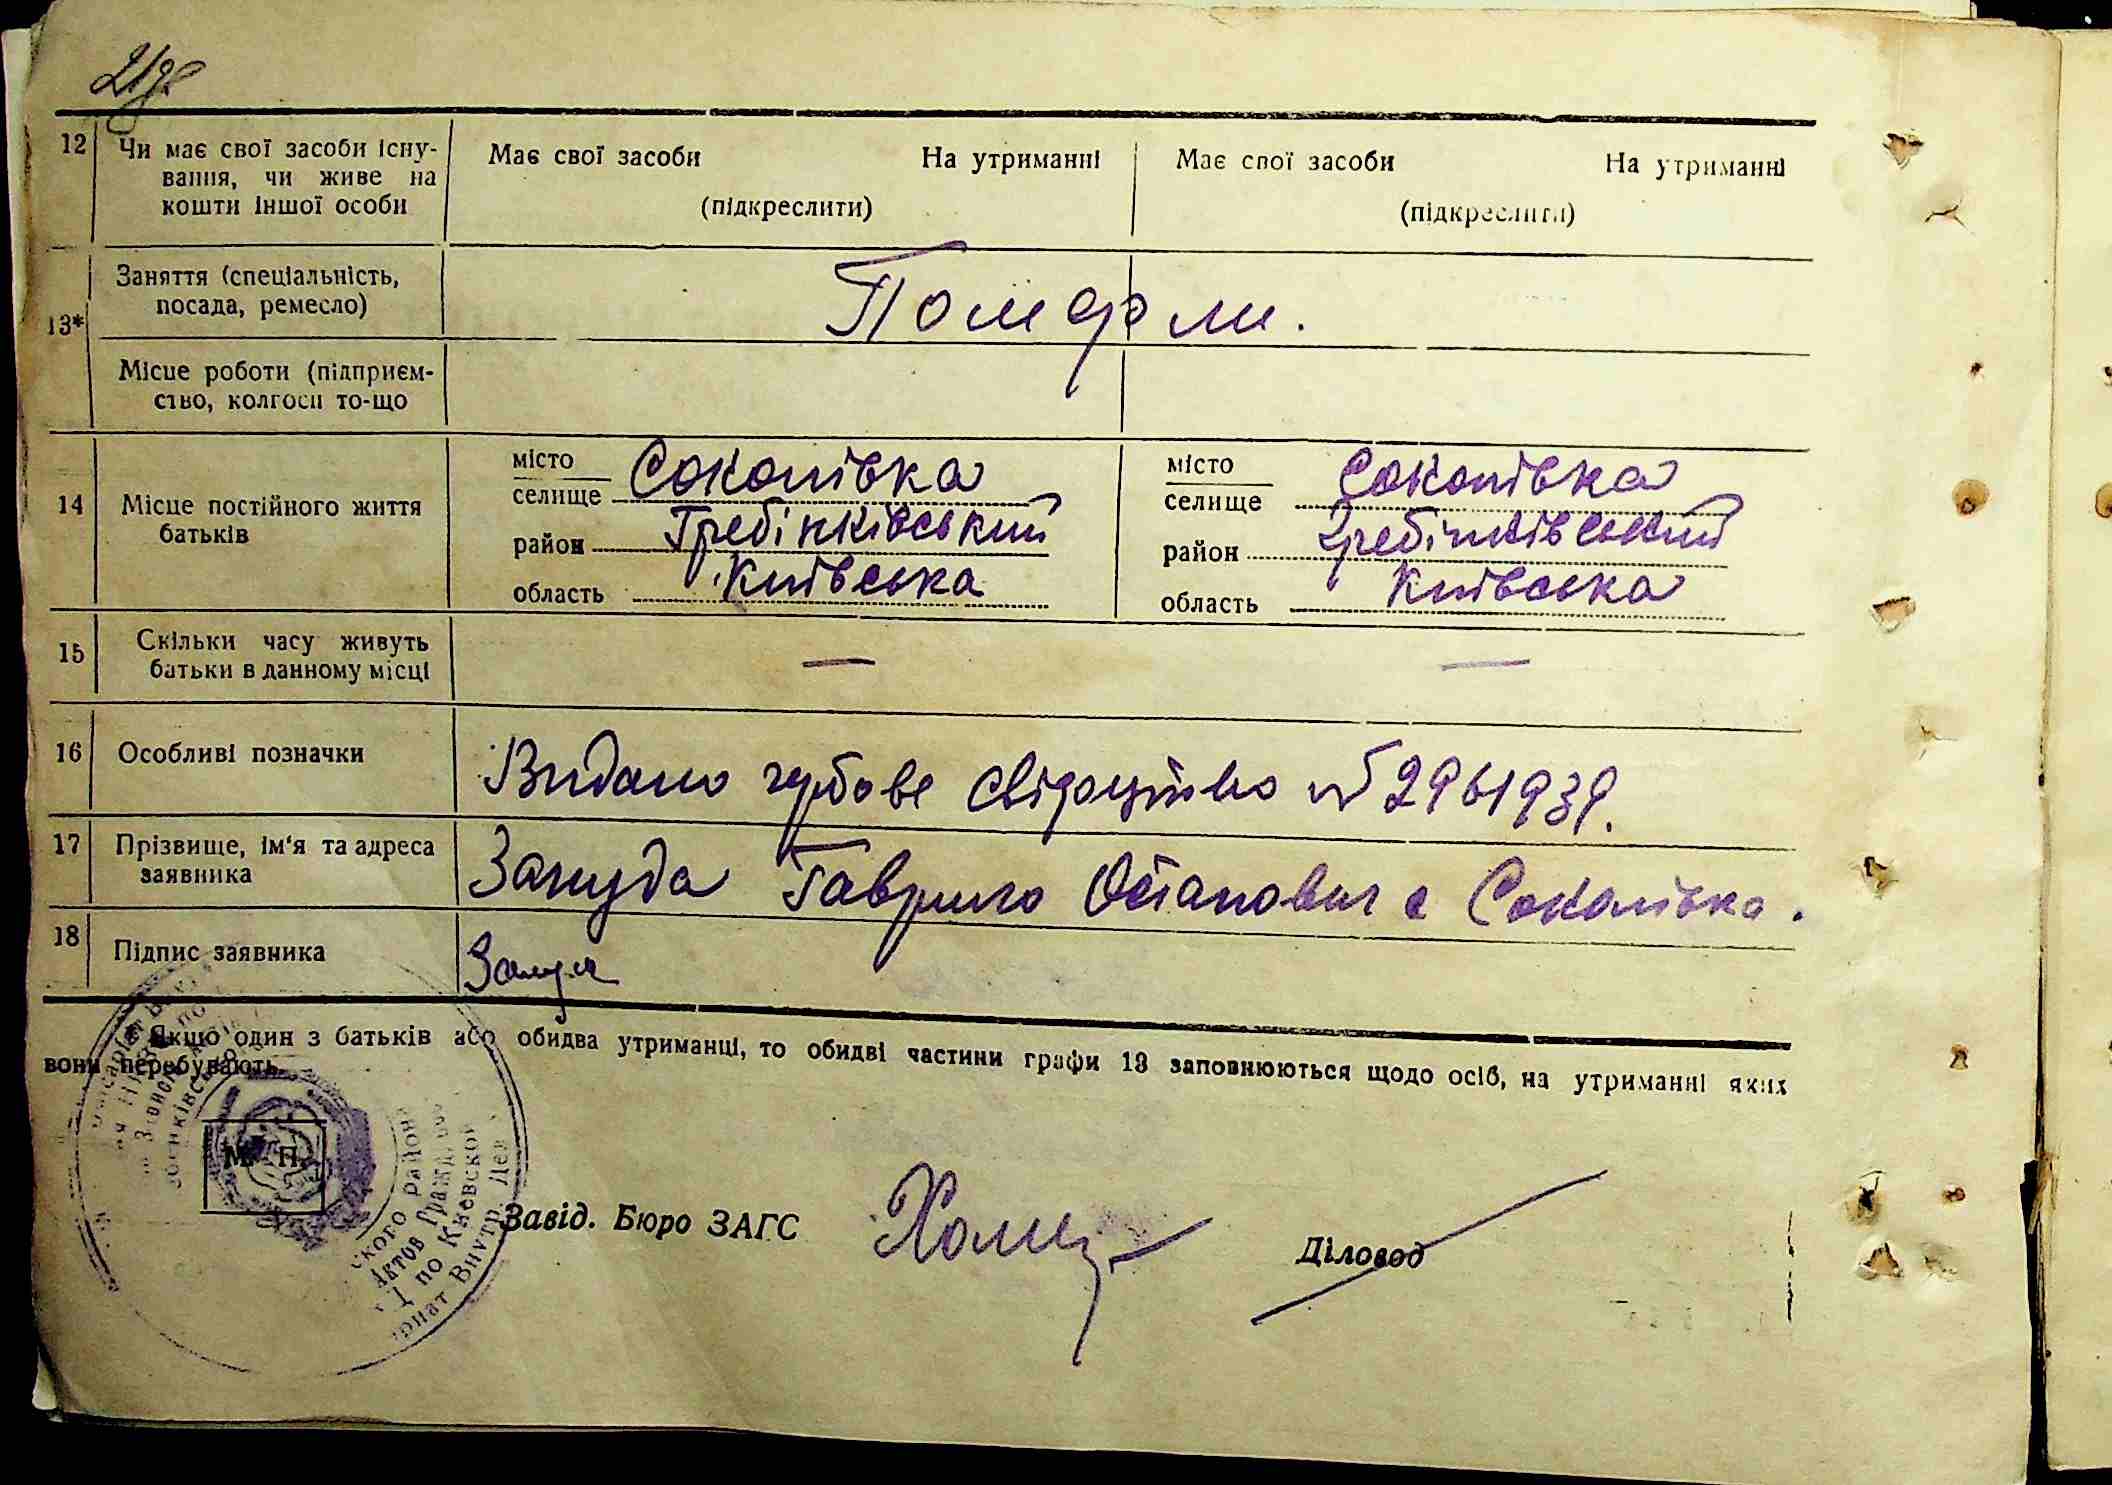 12 Чи має свої засоби існу-
вання, чи живе на
кошти іншої особи
Має свої засоби На утриманні
(підкреслити)
Має свої засоби На утриманні
(підкреслити)
13*
Заняття (спеціальність,
посада, ремесло)
Померли.
Місце роботи (підприєм-
ство, колгосп то-що
14 Місце постійного життя
батьків
місто
селище Соколівка
район Гребінківський
область Київська
місто
селище Соколівка
район Гребінківський
область Київська
15 Скільки часу живуть
батьки в данному місці
— —
16 Особливі позначки
Видано гербове свідоцтво № 2961939.
17 Прізвище, ім'я та адреса
заявника
Зануда Гаврило Остапович с Соколівка.
18 Підпис заявника
Якщо один з батьків або обидва утриманці, то обидві частини графи 13 заповнюються щодо осіб, на утриманні яких
вони перебувають.
М. П.
Завід. Бюро ЗАГС
Діловод
ского района
Актов Гражд
по Киевской
Внутр. Дел